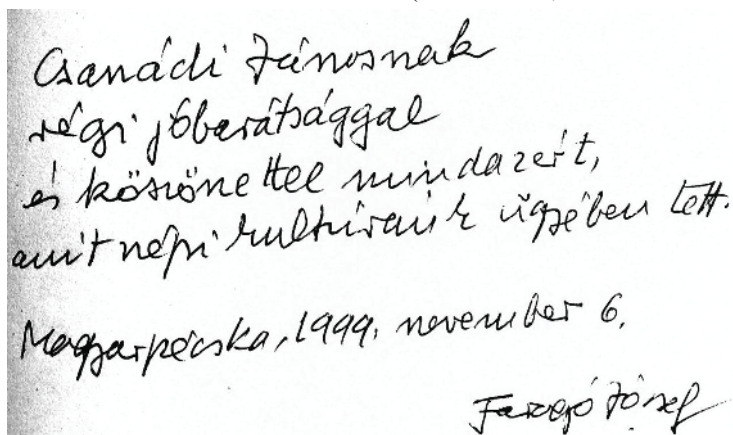 Csanádi Jánosnak
régi jóbarátsággal
és köszönettel mindazért,
amit népi kultúránk ügyében tett.
Magyarpécska, 1999. november 6.
Faragó József